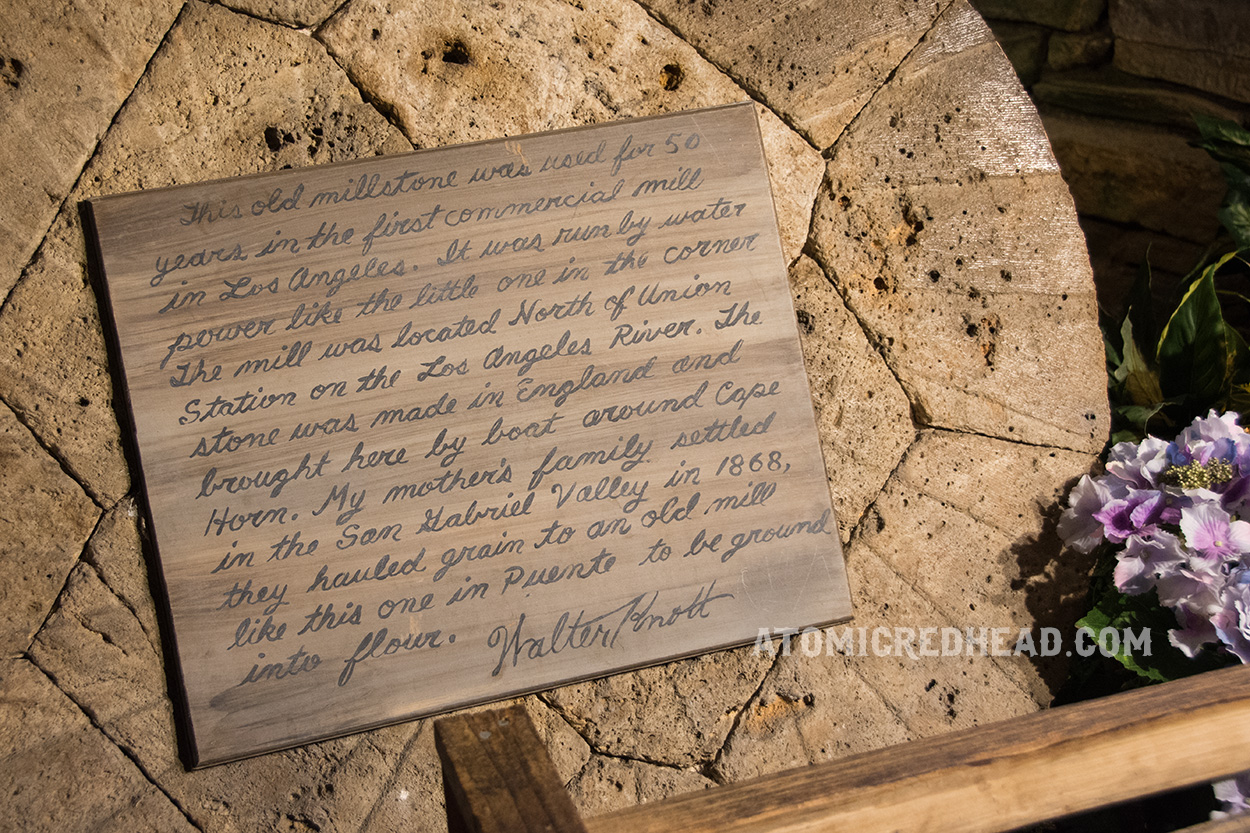 This old millstone was used for 50
years in the first commercial mill
in Los Angeles. It was run by water
power like the little one in the corner
The mill was located North of Union
Station on the Los Angeles River. The
stone was made in England and
brought here by boat around Cape
Horn. My mother's family settled
in the San Gabriel Valley in 1868,
they hauled grain to an old mill
like this one in Puente to be ground
into flour. Walter Knott
ATOMICREDHEAD.COM